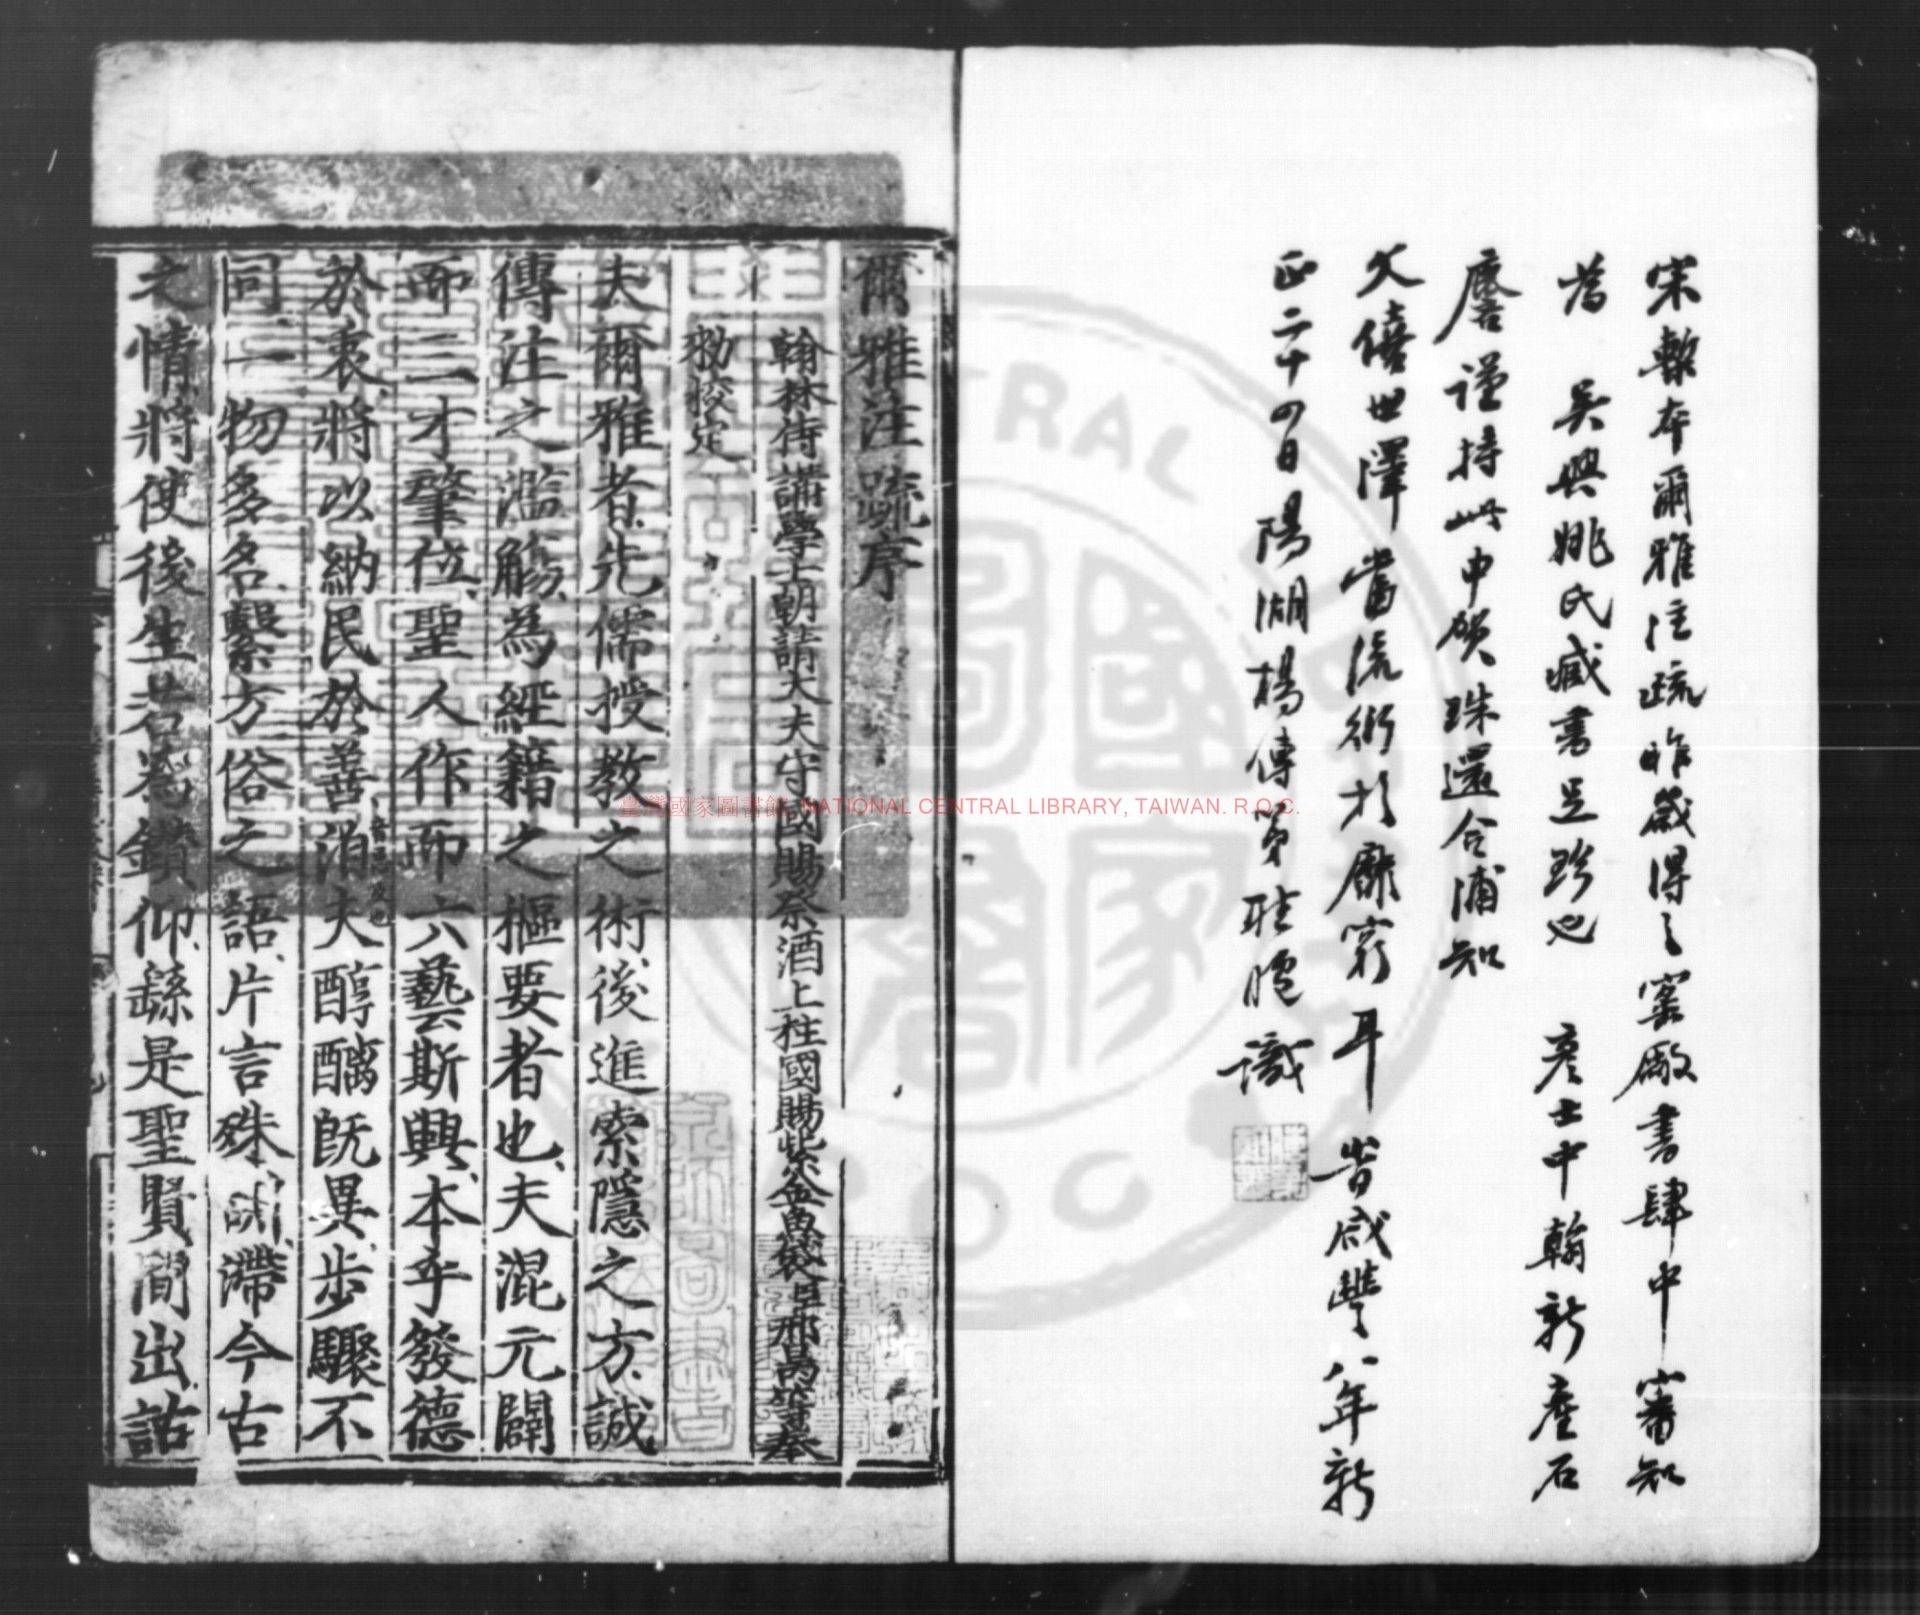 宋槧本爾雅注疏昨歲得之窑廠書肆中審知
為吳興姚氏臧書足珍也彥士中翰新產石
麐謹持此申賀珠還合浦知
文僖世澤當流衍於靡窮耳峕咸豐八年新
正二十四日陽湖楊傳第聽臚識
爾雅注疏序
翰林侍講學士朝請大夫守國子祭酒上柱國賜紫金魚袋臣邢昺等奉
勑校定
夫爾雅者先儒授教之術後進索隱之方誠
傳注之濫觴為經籍之樞要者也夫混元闢
而三才肇位聖人作而六藝斯興本乎發德
於衷將以納民於善洎夫醇醨既異步驟不
同一物多名繫方俗之語片言殊訓滯今古
之情將使後生若為鑽仰繇是聖賢間出詁
臺灣國家圖書館, NATIONAL CENTRAL LIBRARY, TAIWAN. R.O.C.